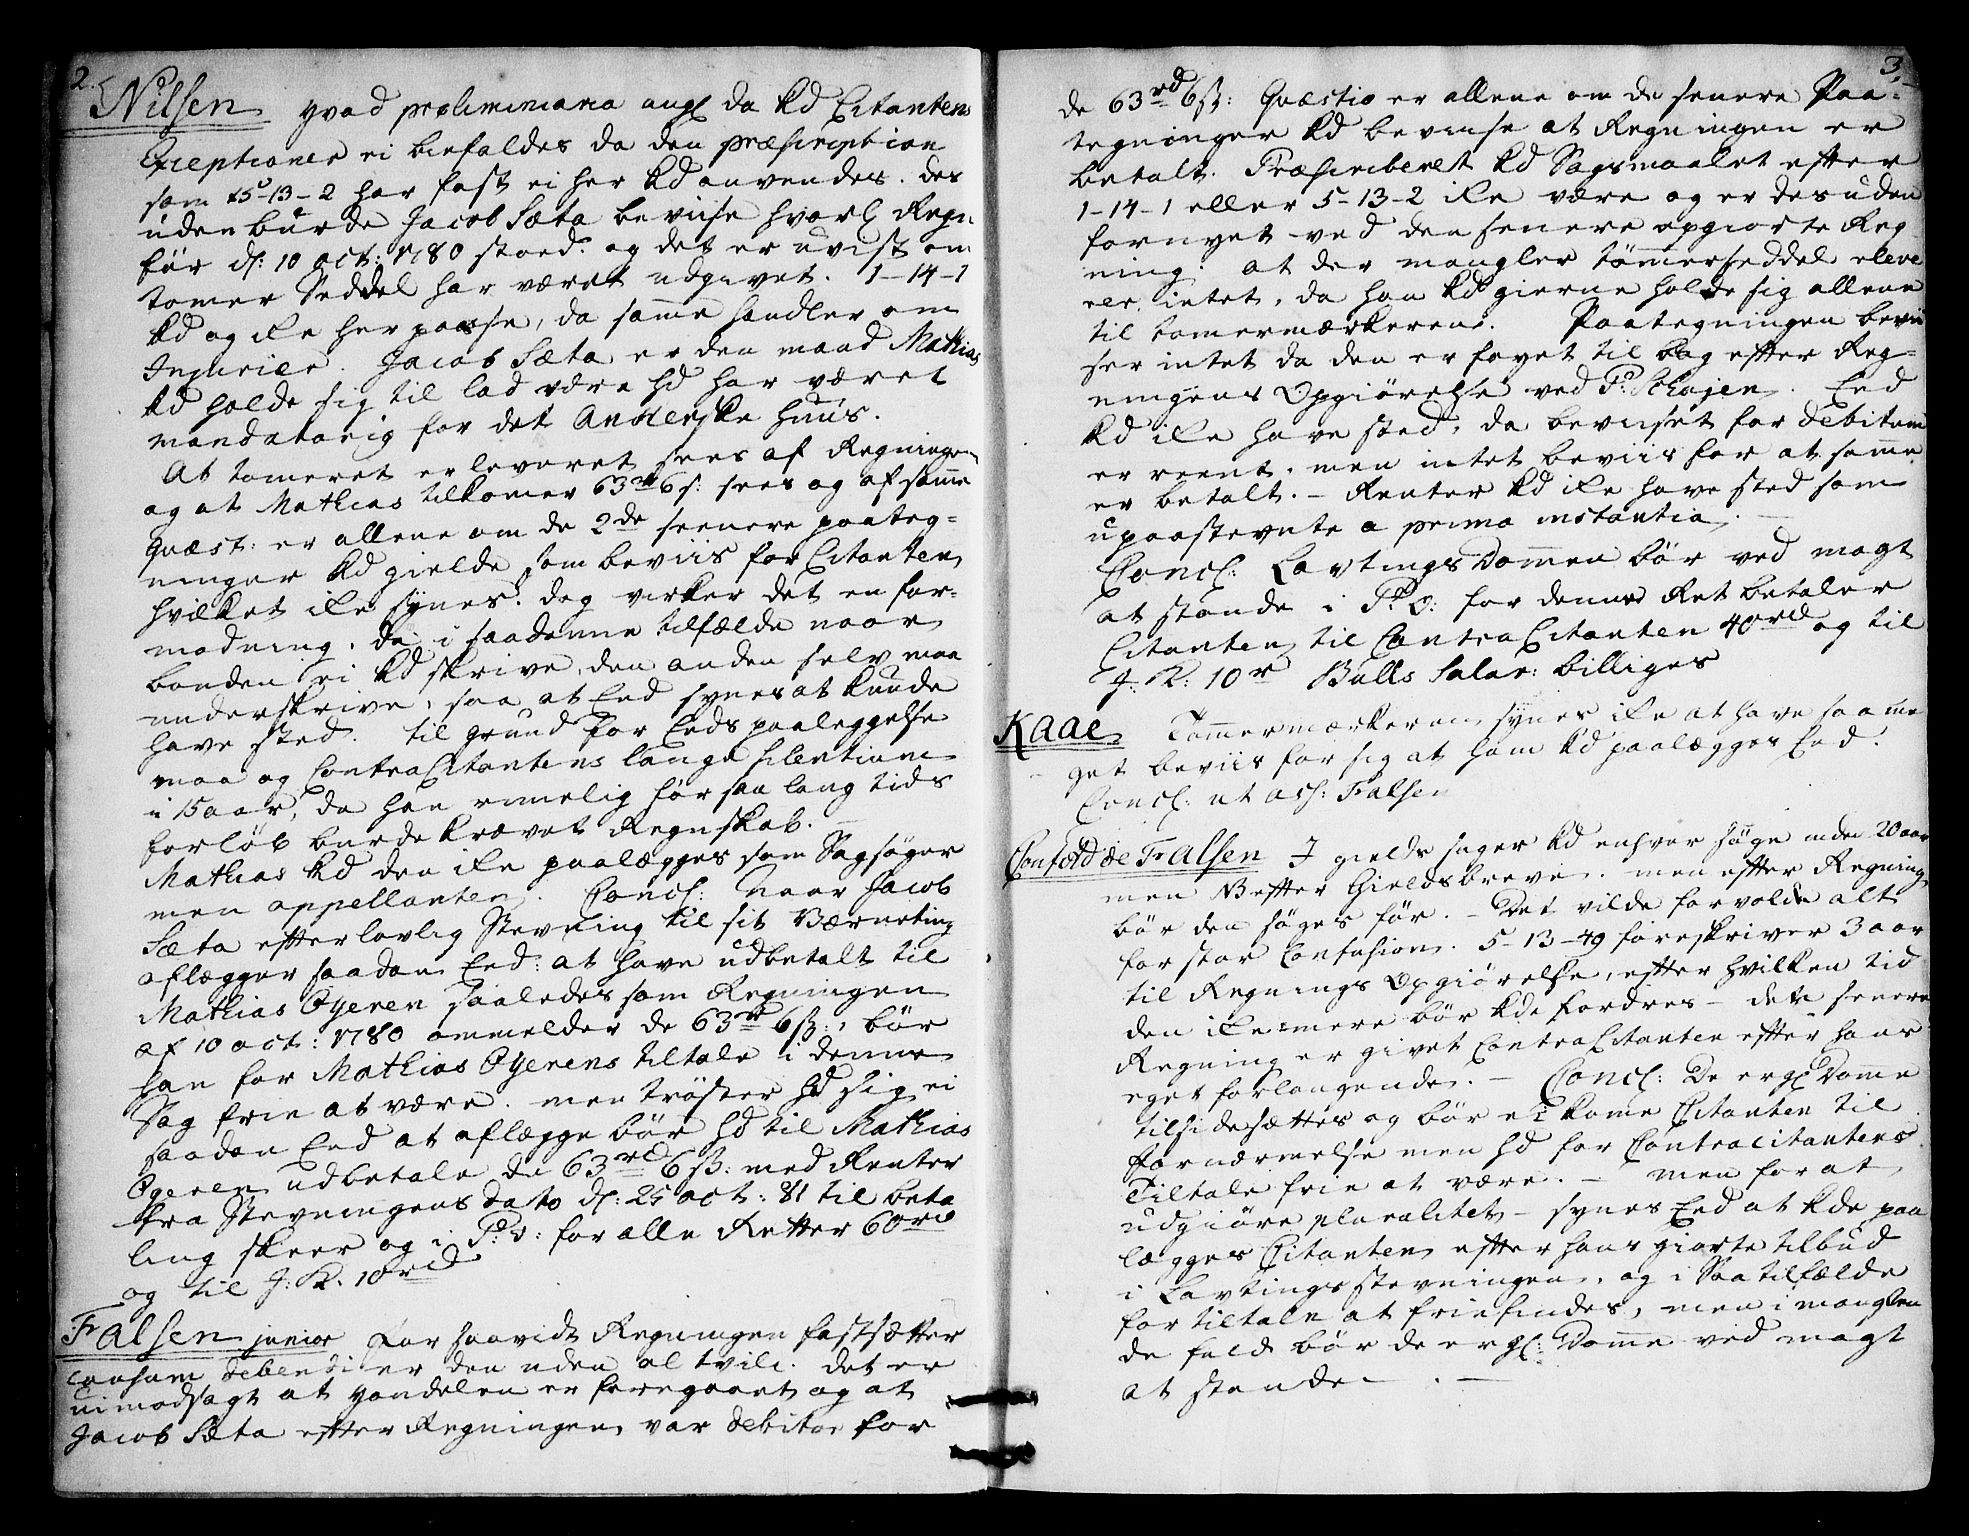 2.
Nilsen hvad præliminaria angl da kd Citantens
Exceptioner ei biefaldes da den præscription
som 5-13-2 har fast ei her kd anvendes. des
uden burde Jacob Sæta beviise hvorl Regn
før dl: 10 oct: 1780 stoed. og det er uvist om
tomer Seddel har været udgivet. 1-14-1
kd og ike her passe, da samme handler om
Injurier. Jacob Sæta er den mand Mathias
kd holde sig til lad være hd har været
mandatarig for det Ankerske huus.
At tomeret er leveret sees af Regningen
og at Mathias tilkomer 63 rd 6 s: sees og af samme
Quæst: er allene om de 2de seenere paateg=
ninger kd gielde som beviis for Citanten
hvilket ike synes. dog virker det en for=
modning, da i saadanne tilfælde naar
bonden ei kd skrive, den anden selv maa
underskrive, saa at Eed synes at kunde
have sted. til grund for Eeds paaleggelse
maa og ContraCitantens lange silentium
i 15 aar, da han rimelig før saa lang tids
forløb burde krævet Regnskab. —
Mathias kd den ike paalægges som Sagsøger
men appellanten. Concl: Naar Jacob
Sæta efter lovlig Stevning til sit Værneting
aflægger saadan Eed: at have udbetalt til
Mathias Øyeren saaledes som Regningen
af 10 oct: 1780 ommelder de 63 rd 6 ß:, bør
han for Mathias Øyerens tiltale i denne
Sag frie at være. men trøster hd sig ei
saadan Eed at aflægge bør hd til Mathias
Øyeren udbetale de 63 rd 6 ß: med Renter
fra Stevningens dato dl: 25 oct: 81 til beta
ling skeer og i P: O: for alle Retter 60 rd
og til J: K. 10 rd
Falsen junior For saavidt Regningen fastsætter
causam debendi er den uden al tvivl. det er
uimodsagt at handelen er foregaaet og at
Jacob Sæta efter Regningen var debitor for
3.
de 63 rd 6 ß: Quæstio er allene om de senere Paa=
tegninger kd beviise at Regningen er
betalt. Præscriberet kd Sagsmaalet efter
1-14-1 eller 5-13-2 ike være og er desuden
fornyet ved den senere opgiorte Reg
ning. at der mangler tømmerseddel eleve
rer intet, da han kd gierne holde sig allene
til tomermærkeren. Paategningen bevii
ser intet da den er føyet til bag efter Reg=
ningens Opgiørelse ved P: Schøjen. Eed
kd ike have sted, da beviiset for debitum
er reent, men intet beviis for at samme
er betalt. — Renter kd ike have sted som
upaastevnte a prima instantia. —
Concl: Lavtings Dommen bør ved magt
at stande i P: O: for denne Ret betaler
Citanten til ContraCitanten 40 rd og til
J: K: 10 r Bulls Salar: billiges
Kaae Tømmermærkeren synes ike at have saa me
get beviis for sig at ham kd paalægges Eed.
Concl: ut ass: Falsen
Conf de Falsen I gields sager kd enhver søge inden 20 aar
men NB efter Gieldsbreve. men efter Regning
bør den søges før. — Det vilde forvolde alt
for stor Confusion. 5-13-49 foreskriver 3 aar
til Regnings Opgiørelse, efter hvilken tid
den ike mere bør kde fordres — den senere
Regning er givet ContraCitanten efter hans
eget forlangende. — Concl: De ergl Domme
tilsidesættes og bør ei kome Citanten til
fornærmelse men hd for Contracitantens
Tiltale frie at være. — men for at
udgiøre pluralitet — synes Eed at kde paa
lægges Citanten efter hans giorte tilbud
i Lavtingsstevningen, og i Saa tilfælde
for tiltale at friefindes, men i manglen
de fald bør de ergl: Domme ved magt
at stande. —